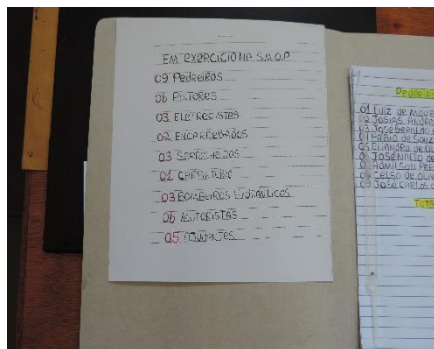 EM EXERCICIO NA S.M.O.P
09 Pedreiros
06 PINTORES
03 ELETRECISTAS
02 ENCARREGADOS
03
01 CARPINTEIRO
03 BOMBEIROS HIDRAULICOS
06 MOTORISTAS
05 AJUDANTES
Pedreiros
01 Luiz de Moura
02 JOSIAS ANDRE
03 Jose Geraldo
Fabio de Souz
05
JOSENILDO DE
ADMILSON PER
CELSO DE OLIV
09 JOSE CARLOS
TOTA